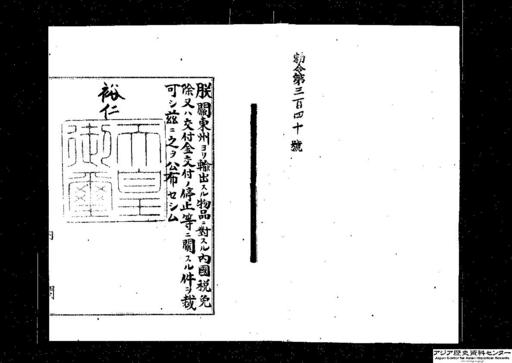 勅令第三百四十號
朕關東州ヨリ輸出スル物品ニ對スル內國稅免
除又ハ交付金交付ノ停止等ニ關スル件ヲ裁
可シ茲ニ之ヲ公布セシム
裕仁
天皇
御璽
內
閣
アジア歴史資料センター
Japan Center for Asian Historical Records